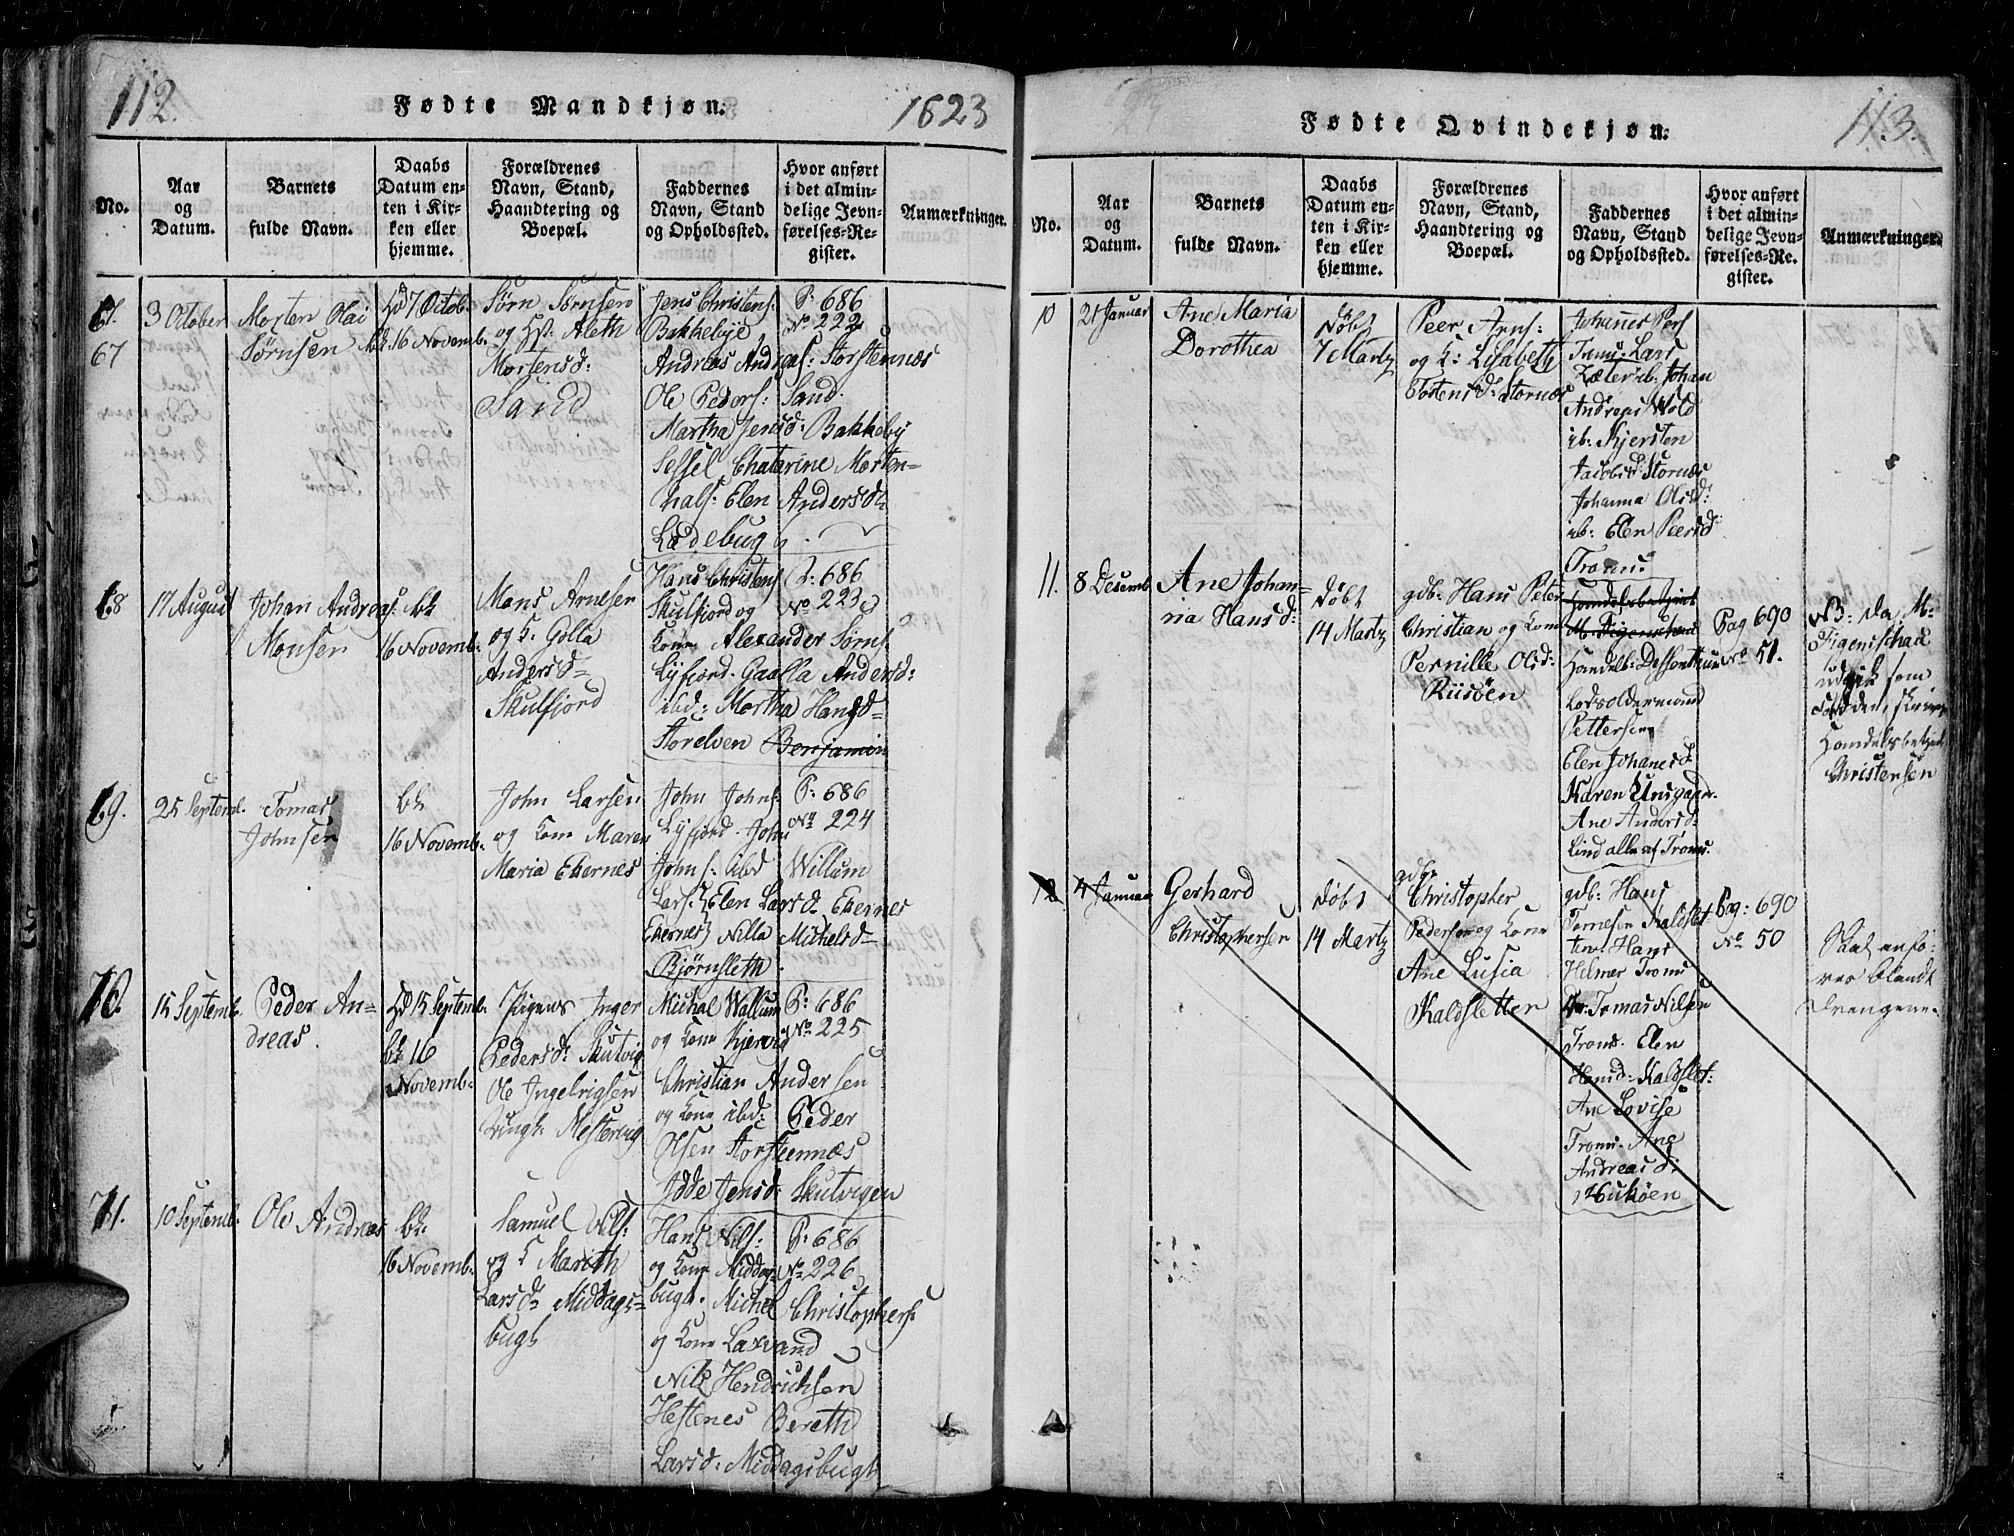 112.
Fødte Mandkjøn.
1823
No.
Aar og Datum.
Barnets fulde Navn.
Daabs Datum enten i Kirken eller hjemme.
Forældrenes Navn, Stand, Haandtering og Boepæl.
Faddernes Navn, Stand og Opholdssted.
Hvor anført i det almindelige Jevnførelses-Register.
Anmærkninger.
67.
67
3 October
Morten Olai
Sørnsen
Hd 7 Octob.
bk. 16 Novemb.
Sørn Sørnsen
og Hst. Aleth
Mortensd:
Sand
Jens Christens:
Bakkebye
Andreas Andreas: Storstennæs
Ole Peders: Sand.
Martha Jensd: Bakkeby
Sessel Chatarine Morten-
hals: Elen Andersd=
Ladebugh.
P: 686
No 222
68
17 August
Johan Andreas:
Monsen
bk
16 Novemb.
Mons Arnesen
og K. Golla
Andersd=
Skulfjord
Hans Christens
Skulfjord og
Kone Alexander Sørns:
Lyfjord. Gaalla Andersd:
ibd: Martha Hansd=
Storelven Benjamin
P: 686
No 223
69.
25 Septemb.
Tomas
Johnsen
bk
16 Novemb.
John Larsen
og Kone Maren
Maria Ekernes
John Johns:
Lyfjord. John
Johns: ibd Willum
Lars: Elen Larsd= Ekernes
Ekernes Nilla Michelsd=
Bjørnsleth.
P: 686
No 224
70.
15 Septemb.
Peder An=
dreas.
Hd 15 Septemb.
bk 16
Novemb.
Pigens Inger
Pedersd: Skutvig
Ole Ingelrigsen
Ungk. Mestervig
Michal Wallum
og Kone Kjervig
Christian Andersen
og Kone ibd: Peder
Olsen Storsteennæs
Idde Jensd: Skutvigen
P: 686
No 225
71.
10 Septemb.
Ole Andreas
bk.
16 Novemb.
Samuel Nils:
og K Marith
Larsd= Middags=
bugh
Hans Nils:
og Kone Middags
bugh. Michel Christophers:
og Kone Laxvand
Nils Hendrichsen
Hestenes Bereth
Larsd: Middagsbugh
P: 686
No 226
Fødte Qvindekjøn.
113.
No.
Aar og Datum.
Barnets fulde Navn.
Daabs Datum enten i Kirken eller hjemme.
Forældrenes Navn, Stand, Haandtering og Boepæl.
Faddernes Navn, Stand og Opholdssted.
Hvor anført i det almindelige Jevnførelses-Register.
Anmærkninger.
10
21 Januar
Ane Maria
Dorothea
Døbt
7 Martz
Peer Arns:
og K: Lisabeth
Tostensd: Stornæs
Johannes Pers
Troms: Lars
Zæter ib. Johan
Andreas Wold
ib: Kjersten
Jacobsd: Stornæs
Johanna Olsd:
ib: Elen Peersd:
Troms.
11.
8 Desemb
Ane Johan=
na Hansd:
Døbt
14 Martz
gdb: Hans Peter
Christian og Kone
Pernille Olsd:
Riisöen
Handelsbetjent
M. Figenschaue
Handelsb: Dessonthun
Lodsoldermand
Pettersen
Elen Johanesd
Karen Unsgaar.
Ane Andersd:
Lind alle af Troms.
Pag 690
No 51.
NB: da M.
Figenschau
udgik som
Fadder,
Handelsbetjent
Christensen
12.
4 Januar
Gerhard
Christophersen
Døbt
14 Martz
gdb.
Christopher
Pedersen og Kone
Ane Lusia
Kaldsletten
gdb: Hans
Tomesen Kaldslet
ten Hans
Helmer Troms
Dr: Tomas Nilsen
Troms. Elen
Hansd: Kaldslet:
Ane Lovise
Troms. Ane
Andreasd:
Hukøen
Pag: 690
No 50
Skal anfø=
res blandt
Drengene.